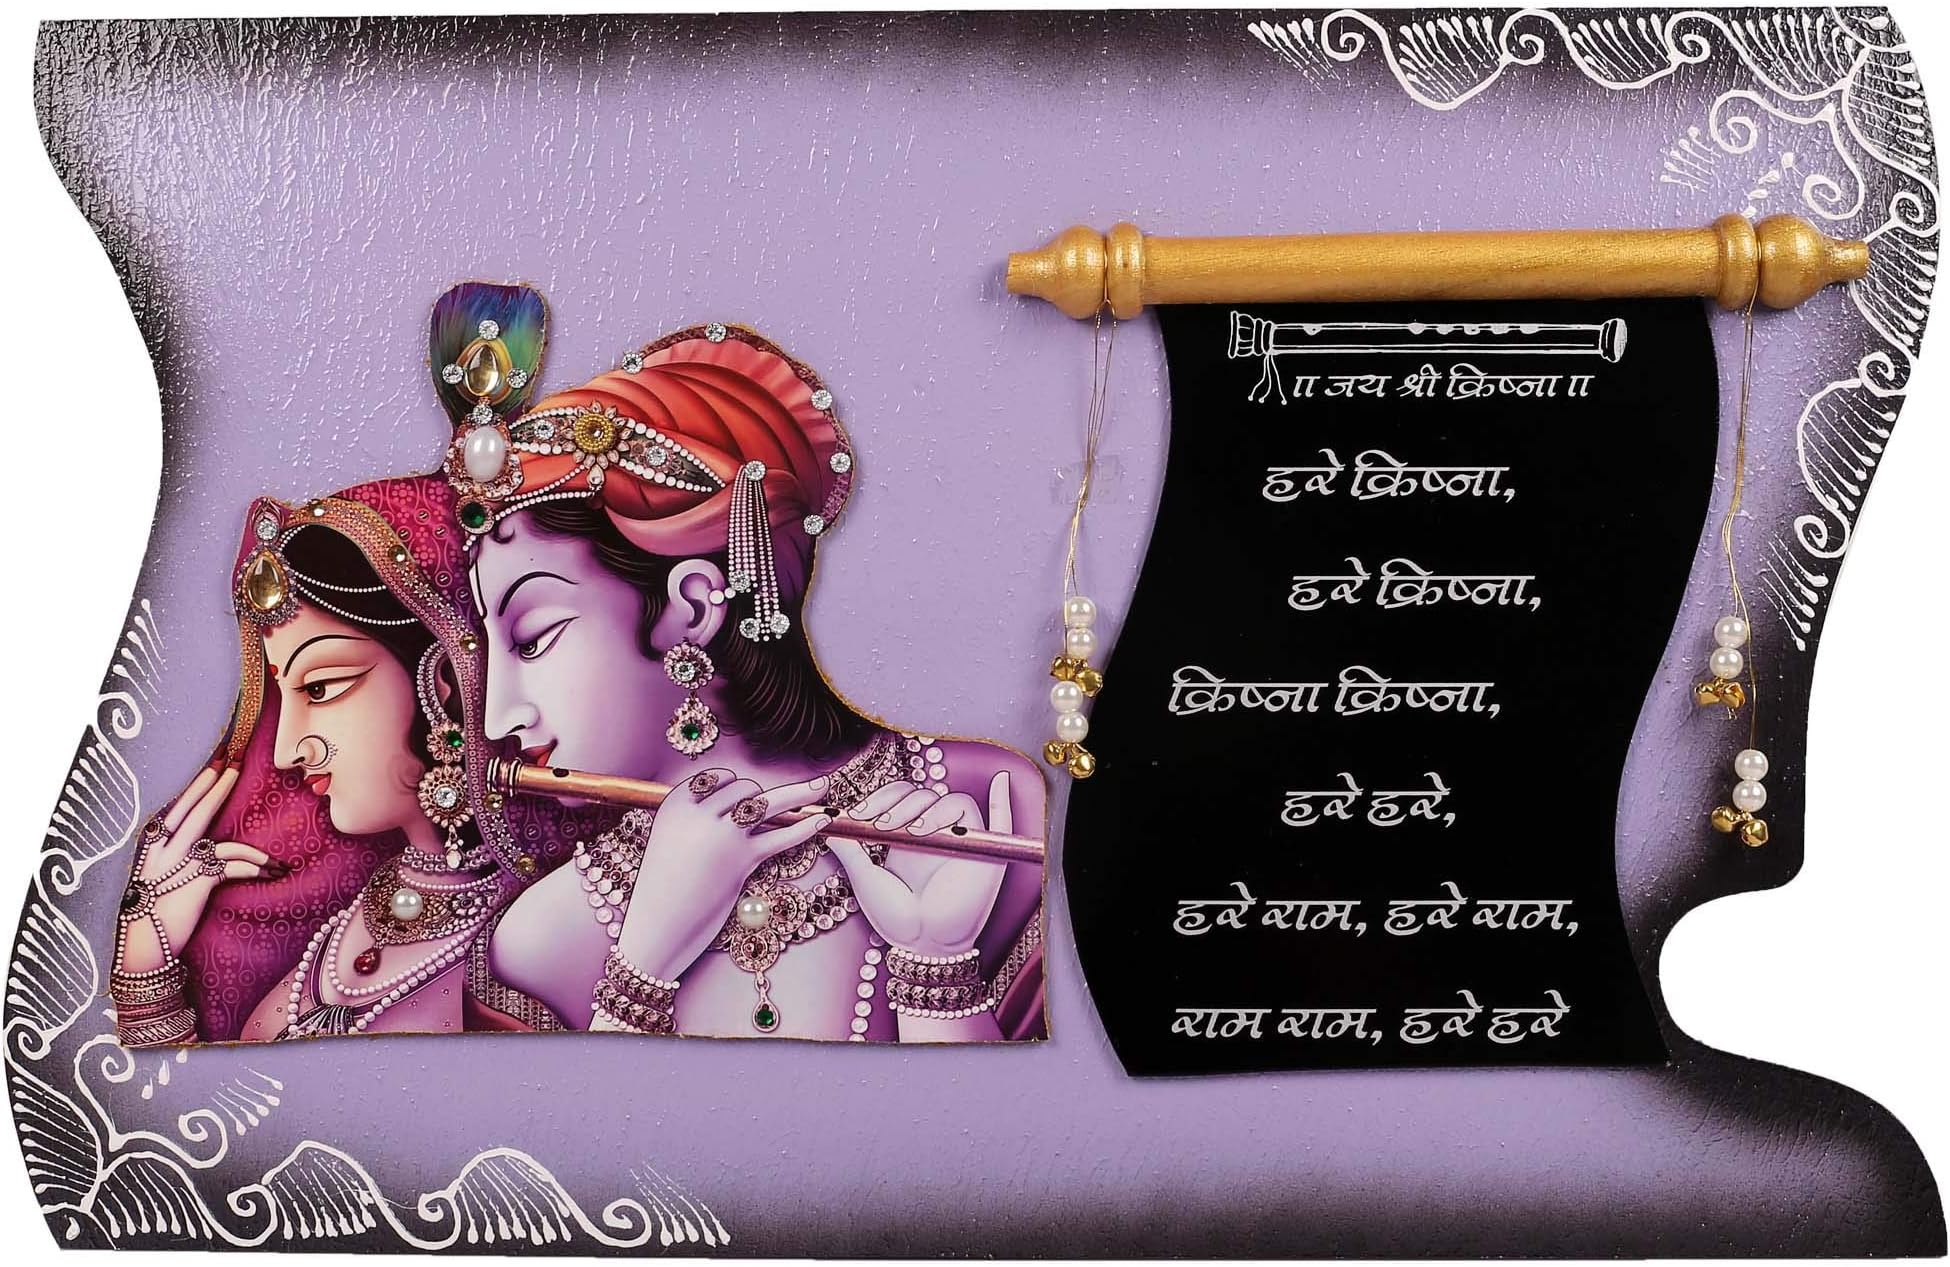 ॥ जय श्री क्रिष्ना ॥
हरे क्रिष्ना,
हरे क्रिष्ना,
क्रिष्ना क्रिष्ना,
हरे हरे,
हरे राम, हरे राम,
राम राम, हरे हरे